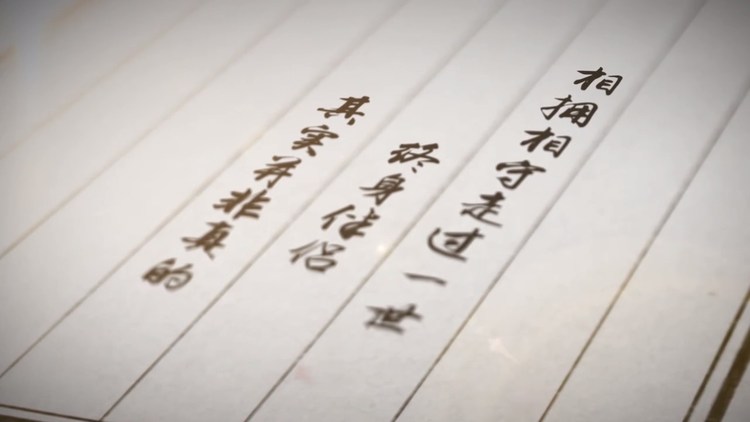 相拥相守走过一世
终身伴侣
其实并非真的